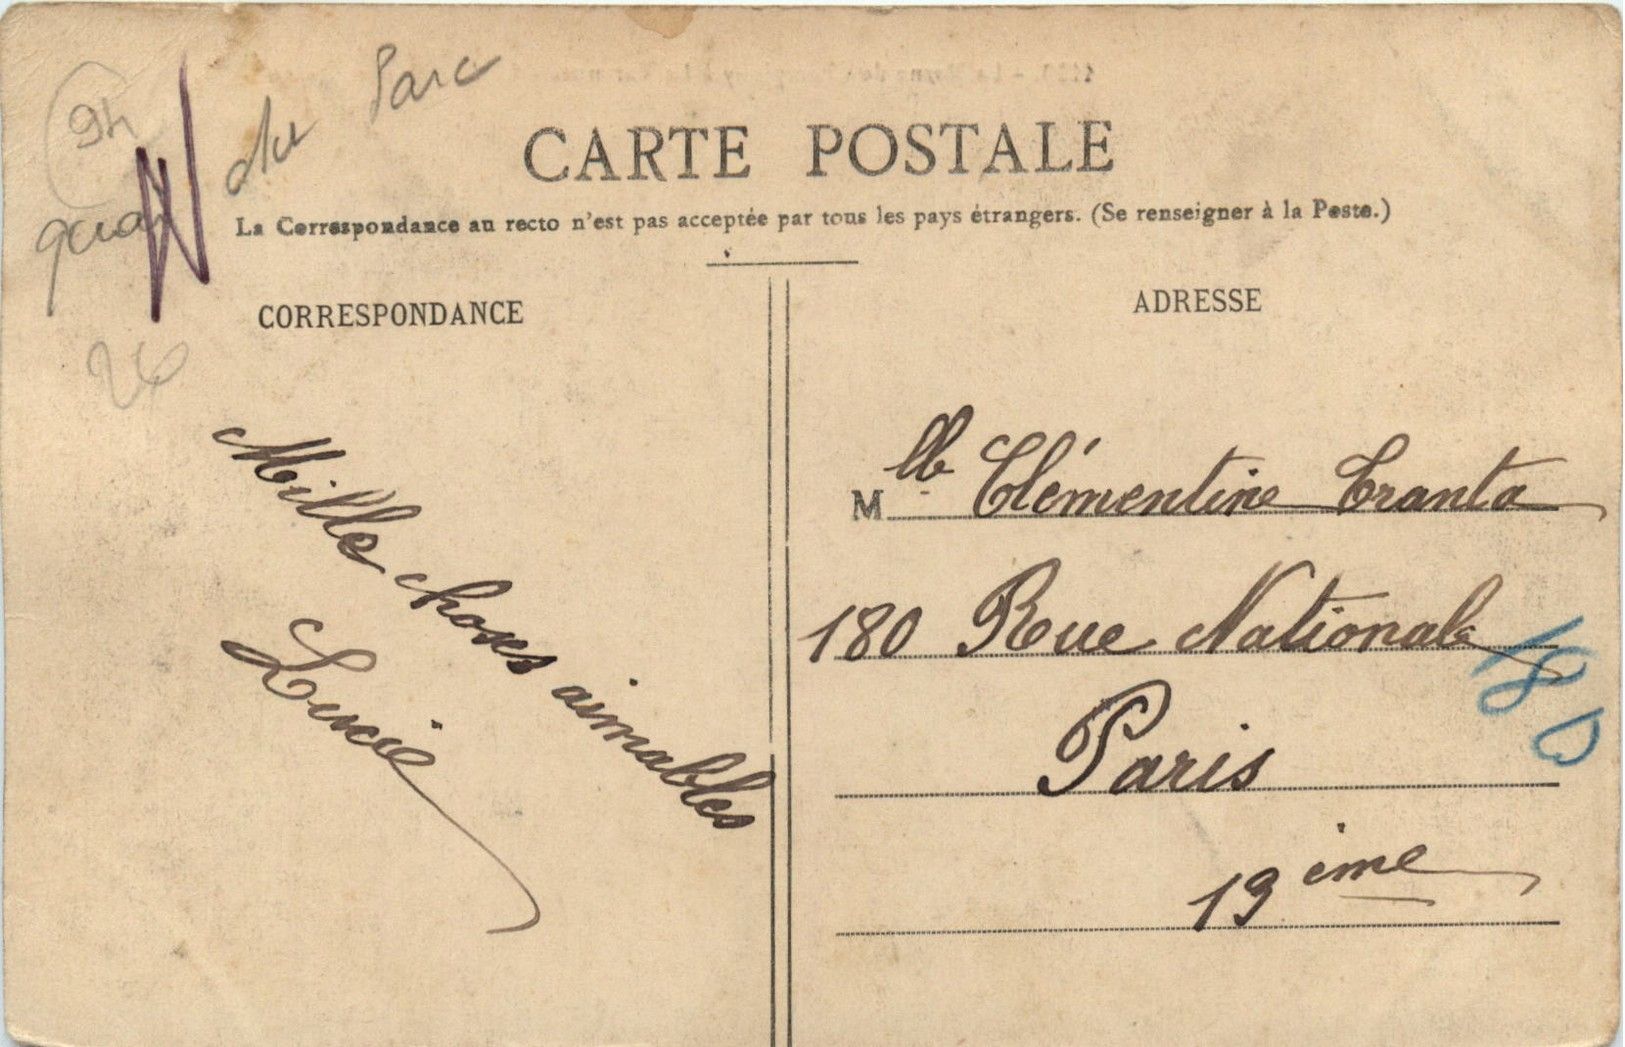 94
quai du Parc
26
CARTE POSTALE
La Correspondance au recto n'est pas acceptée par tous les pays étrangers. (Se renseigner à la Poste.)
CORRESPONDANCE
Mille choses aimables
Lucie
ADRESSE
Mlle Clémentine Tranta
180 Rue Nationale
Paris
13ème